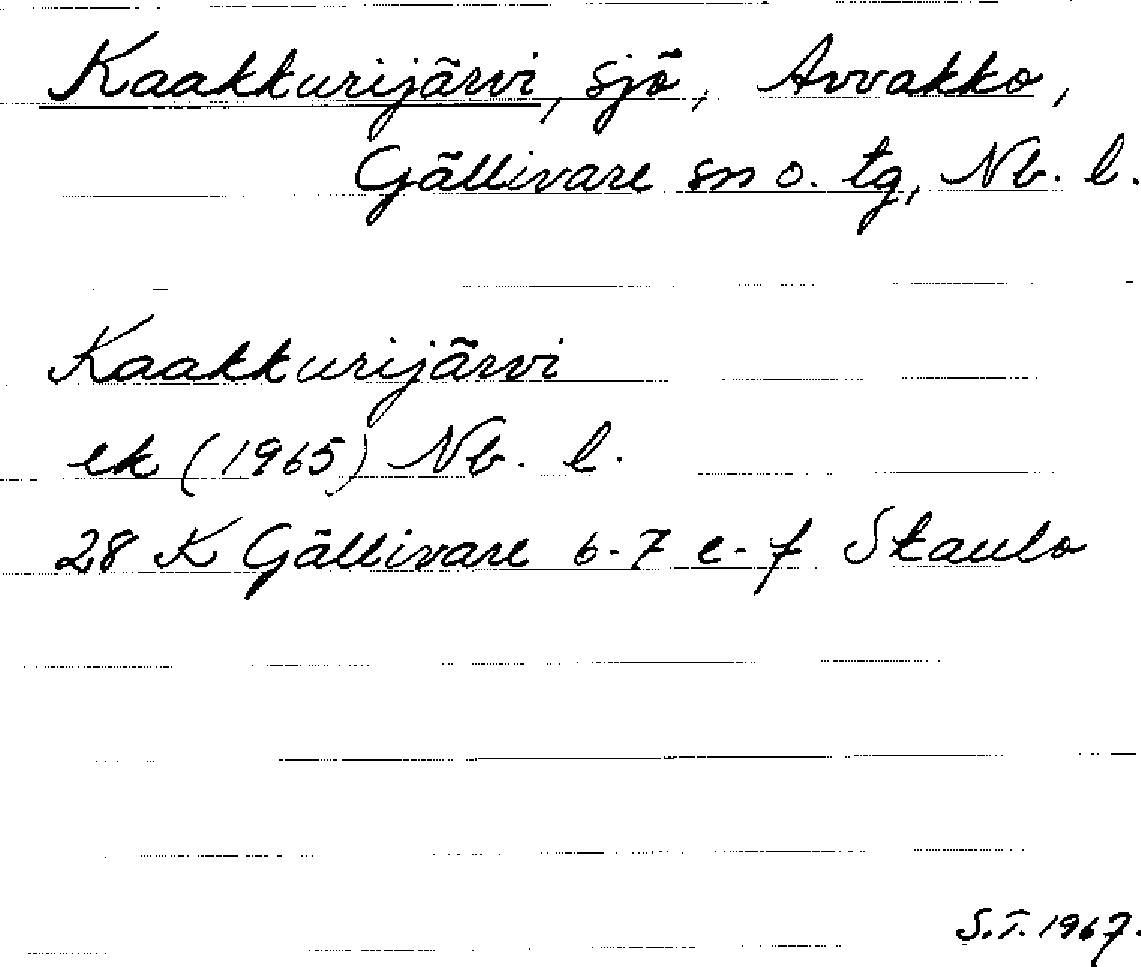 Kaakkurijärvi, sjö, Avvakko,
Gällivare sn o. tg, Nb. l.
Kaakkurijärvi
ek (1965) Nb. l.
28 K Gällivare 6-7 e-f Skaulo
S.T. 1967.